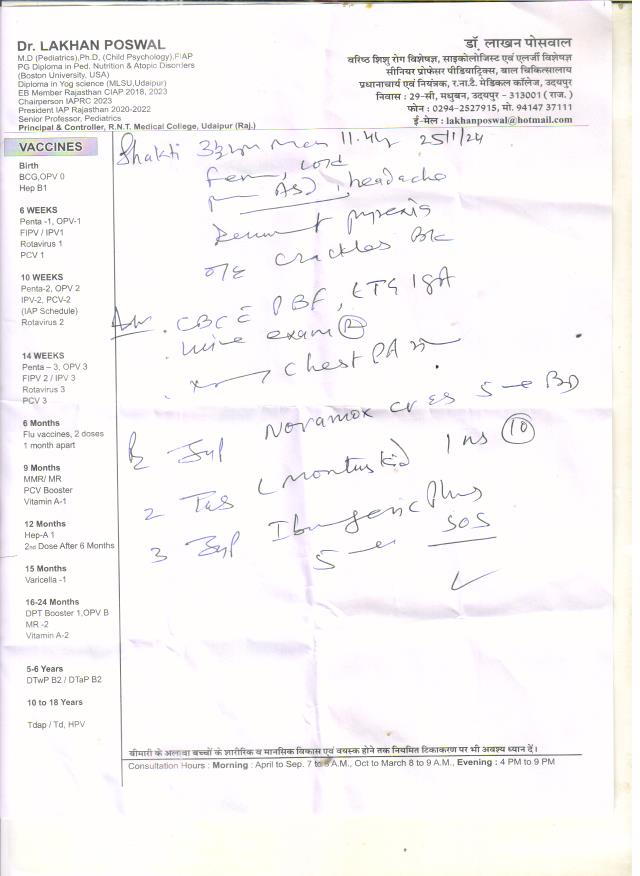 Dr. LAKHAN POSWAL
M.D (Pediatrics),Ph.D, (Child Psychology),FIAP
PG Diploma in Ped, Nutrition & Atopic Disorders
(Boston University, USA)
Diploma in Yog science (MLSU,Udaipur)
EB Member Rajasthan CIAP 2018, 2023
Chairperson IAPRC 2023
President IAP Rajasthan 2020-2022
Senior Professor, Pediatrics
Principal & Controller, R.N.T. Medical College, Udaipur (Raj.)
डॉ. लाखन पोसवाल
वरिष्ठ शिशु रोग विशेषज्ञ, साइकोलोजिस्ट एवं एलर्जी विशेषज्ञ
सीनियर प्रोफेसर पीडियाट्रिक्स, बाल चिकित्सालय
प्रधानाचार्य एवं नियंत्रक, र.ना.टै. मेडिकल कॉलेज, उदयपुर
निवास : 29-सी, मधुबन, उदयपुर - 313001 ( राज. )
फोन : 0294-2527915, मो. 94147 37111
ई-मेल : lakhanposwal@hotmail.com
VACCINES
Birth
BCG,OPV 0
Hep B1
6 WEEKS
Penta -1, OPV-1
FIPV / IPV1
Rotavirus 1
PCV 1
10 WEEKS
Penta-2, OPV 2
IPV-2, PCV-2
(IAP Schedule)
Rotavirus 2
14 WEEKS
Penta – 3, OPV 3
FIPV 2 / IPV 3
Rotavirus 3
PCV 3
6 Months
Flu vaccines, 2 doses
1 month apart
9 Months
MMR/ MR
PCV Booster
Vitamin A-1
12 Months
Hep-A 1
2nd Dose After 6 Months
15 Months
Varicella -1
16-24 Months
DPT Booster 1,OPV B
MR -2
Vitamin A-2
5-6 Years
DTwP B2 / DTaP B2
10 to 18 Years
Tdap / Td, HPV
Shakti 25/1/24
cold
headache
pyrexia
O/E crackles
CBC PBF, IgA
urine exam
chest PA
Syp Novamox 5 BD
2 Tab (Montuskid) 10
3 Syp Ibugesic Plus
5 SOS
बीमारी के अलावा बच्चों के शारीरिक व मानसिक विकास एवं वयस्क होने तक नियमित टिकाकरण पर भी अवश्य ध्यान दें।
Consultation Hours : Morning : April to Sep. 7 to 8 A.M., Oct to March 8 to 9 A.M., Evening : 4 PM to 9 PM